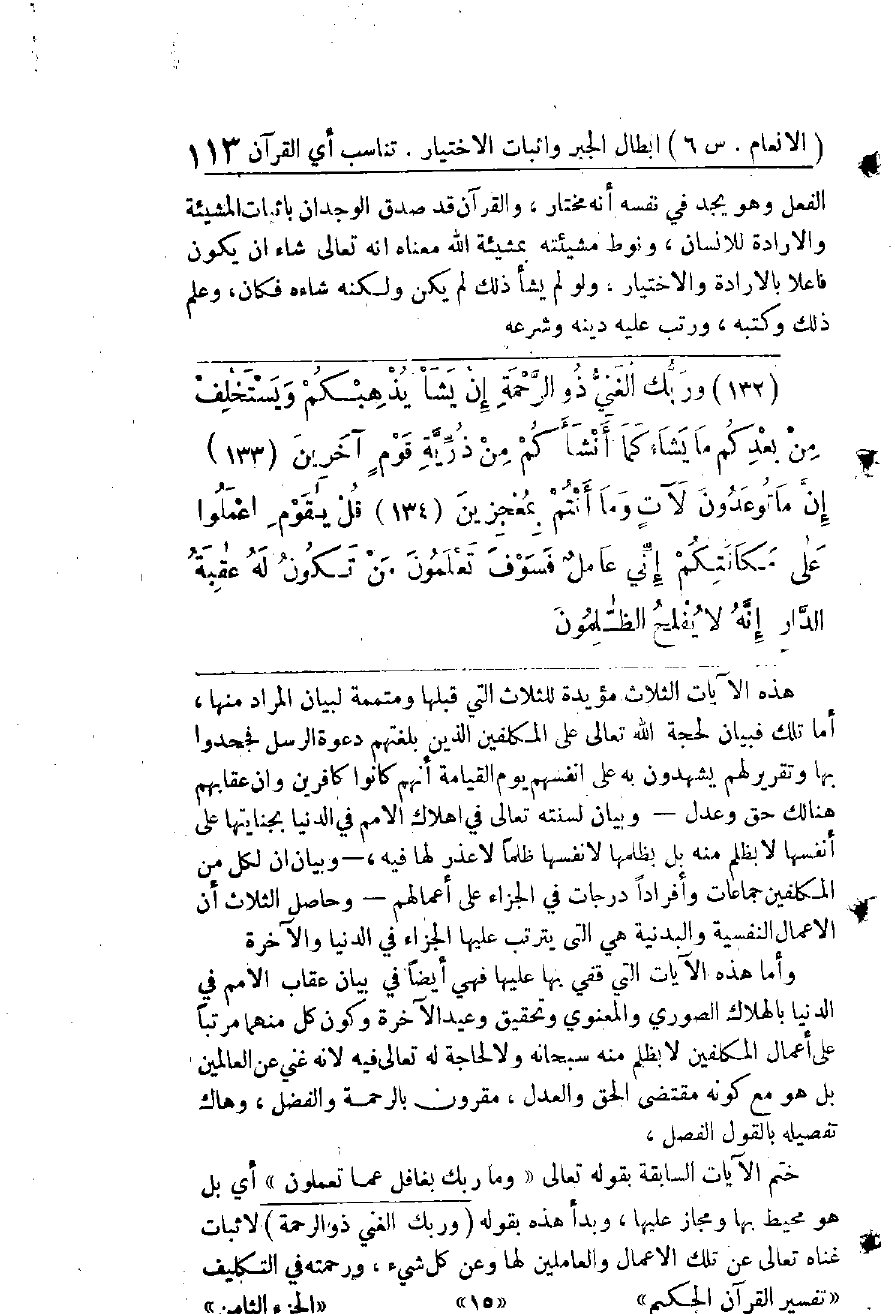 ( الانعام . س ٦ ) ابطال الجبر واثبات الاختيار . تناسب أي القرآن ١١٣
الفعل وهو يجد في نفسه أنه مختار ، والقرآن قد صدق الوجدان باثبات المشيئة
والارادة للانسان ، ونوط مشيئته بمشيئة الله معناه انه تعالى شاء ان يكون
فاعلا بالارادة والاختيار ، ولو لم يشأ ذلك لم يكن ولكنه شاءه فكان ، وعلم
ذلك وكتبه ، ورتب عليه دينه وشرعه
(١٣٢) ورَبُّكَ الْغَنِيُّ ذُو الرَّحْمَةِ إِنْ يَشَأْ يُذْهِبْكُمْ وَيَسْتَخْلِفْ
مِنْ بَعْدِكُم مَا يَشَاءُ كَمَا أَنْشَأَكُمْ مِنْ ذُرِّيَّةِ قَوْمٍ آخَرِينَ (١٣٣)
إِنَّ مَا تُوعَدُونَ لَآتٍ وَمَا أَنْتُمْ بِمُعْجِزِينَ (١٣٤) قُلْ يَٰقَوْمِ اعْمَلُوا
عَلَى مَكَانَتِكُمْ إِنِّي عَامِلٌ فَسَوْفَ تَعْلَمُونَ مَنْ تَكُونُ لَهُ عَٰقِبَةُ
الدَّارِ إِنَّهُ لَا يُفْلِحُ الظَّٰلِمُونَ
هذه الآيات الثلاث مؤيدة للثلاث التي قبلها ومتممة لبيان المراد منها ،
أما تلك فبيان لحجة الله تعالى على المكلفين الذين بلغتهم دعوة الرسل فجحدوا
بها وتقريرلهم يشهدون به على انفسهم يوم القيامة أنهم كانوا كافرين وان عقابهم
هنالك حق وعدل — وبيان لسنته تعالى في اهلاك الامم في الدنيا بجنايتها على
أنفسها لا بظلم منه بل بظلمها لانفسها ظلماً لا عذر لها فيه ، — وبيان ان لكل من
المكلفين جماعات وأفراداً درجات في الجزاء على أعمالهم — وحاصل الثلاث أن
الاعمال النفسية والبدنية هي التى يترتب عليها الجزاء في الدنيا والآخرة
وأما هذه الآيات التي قفي بها عليها فهي أيضاً في بيان عقاب الامم في
الدنيا بالهلاك الصوري والمعنوي وتحقيق وعيد الآخرة وكون كل منهما مرتباً
على أعمال المكلفين لا بظلم منه سبحانه ولا لحاجة له تعالى فيه لانه غني عن العالمين
بل هو مع كونه مقتضى الحق والعدل ، مقرون بالرحمة والفضل ، وهاك
تفصيله بالقول الفصل ،
ختم الآيات السابقة بقوله تعالى « وما ربك بغافل عما تعملون » أي بل
هو محيط بها ومجاز عليها ، وبدأ هذه بقوله ( وربك الغني ذو الرحمة ) لاثبات
غناه تعالى عن تلك الاعمال والعاملين لها وعن كل شيء ، ورحمته في التكليف
«تفسير القرآن الحكيم» «١٥» «الجزء الثامن»